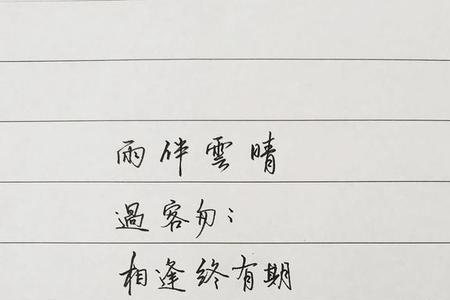 雨伴雲晴
過客匆匆
相逢終有期